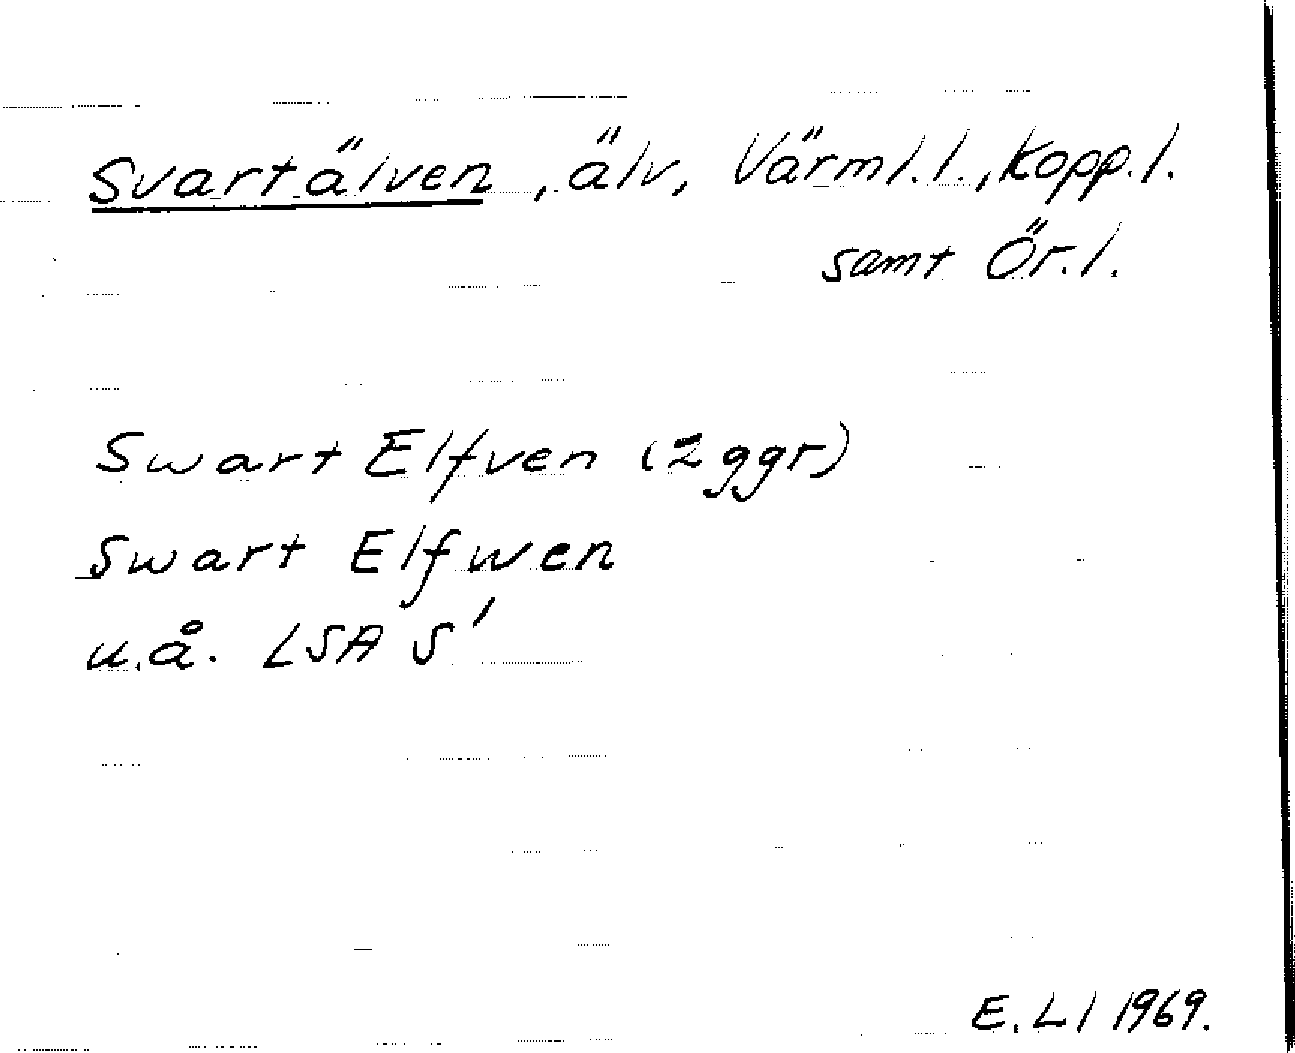 Svartälven, älv, Värml.l., Kopp.l.
samt Ör.l.
Swart Elfven (2 ggr)
Swart Elfwen
u.å. LSA S'
E. Ll 1969.